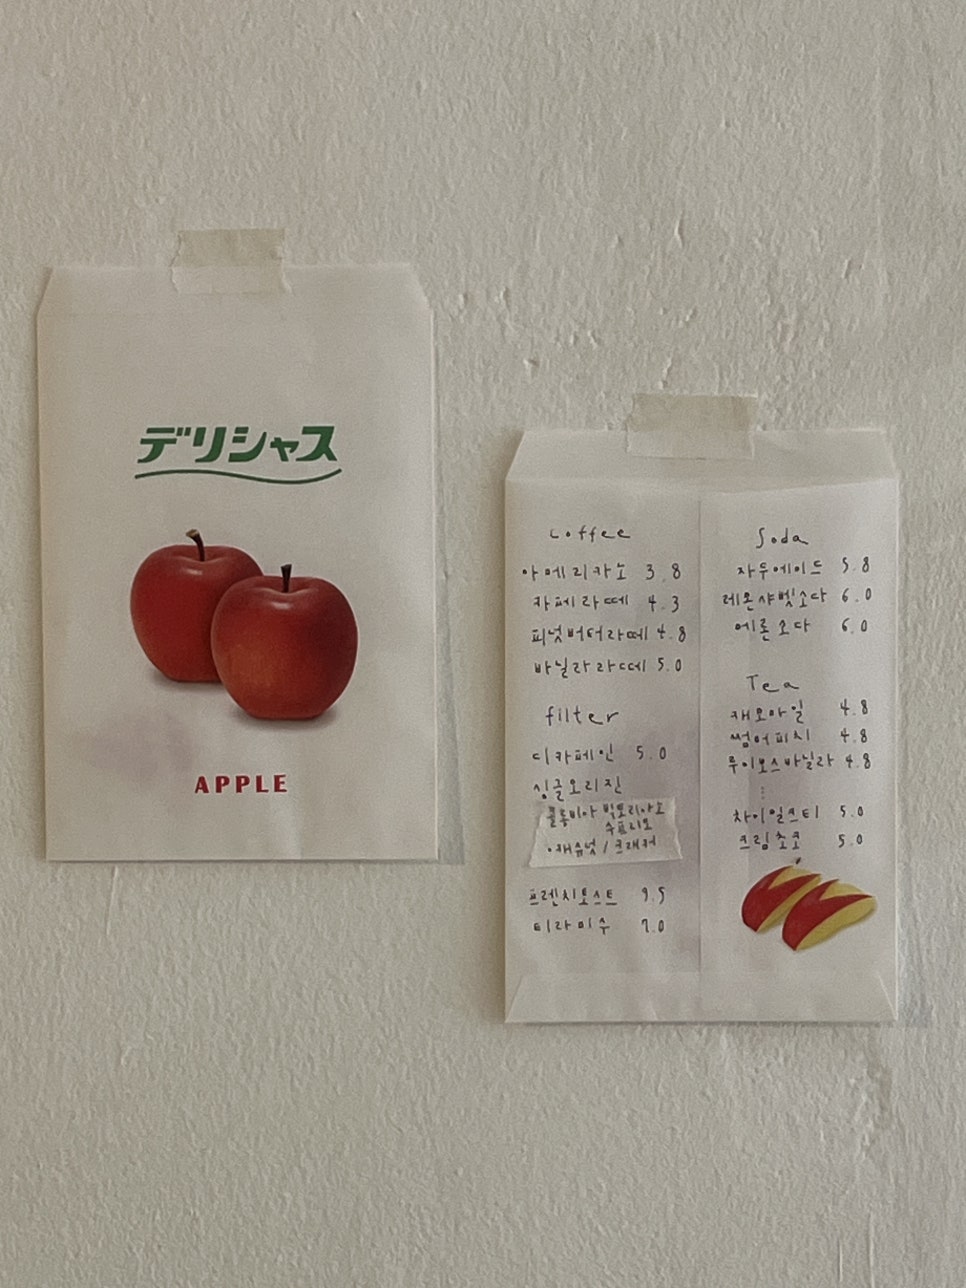 デリシャス
APPLE
Coffee
아메리카노 3.8
카페라떼 4.3
피넛버터라떼 4.8
바닐라라떼 5.0
filter
디카페인 5.0
싱글오리진
콜롬비아 빅토리아
수프리모
•캐슈넛 / 크래커
프렌치토스트 9.5
티라미수 7.0
Soda
자두에이드 5.8
레몬샤벳소다 6.0
메론소다 6.0
Tea
캐모마일 4.8
썸머피치 4.8
루이보스바닐라 4.8
⋮
차이밀크티 5.0
크림초코 5.0